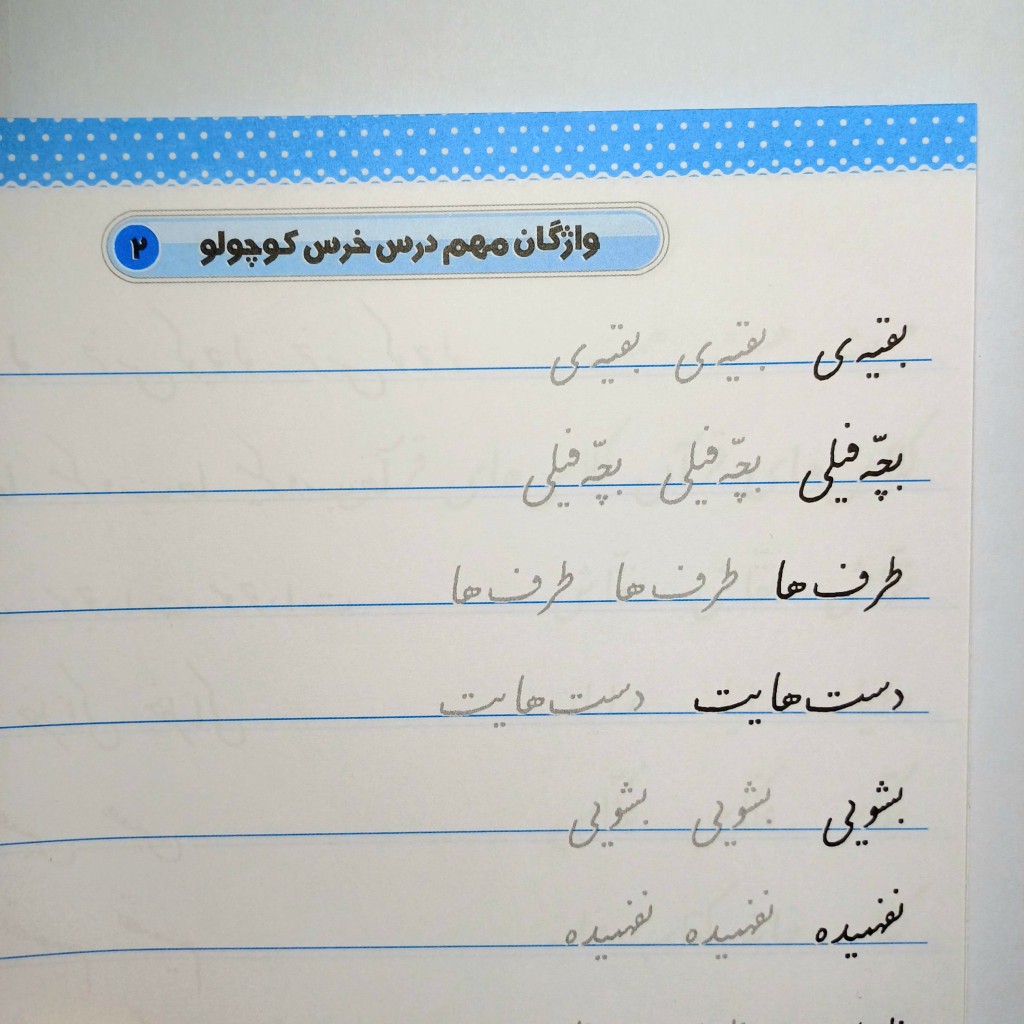 واژگان مهم درس خرس کوچولو ۲
بقیه‌ی بقیه‌ی بقیه‌ی
بچّه فیلی بچّه فیلی بچّه فیلی
طرف‌ها طرف‌ها طرف‌ها
دست‌هایت دست‌هایت
بشویی بشویی بشویی
نفهمیده نفهمیده نفهمیده